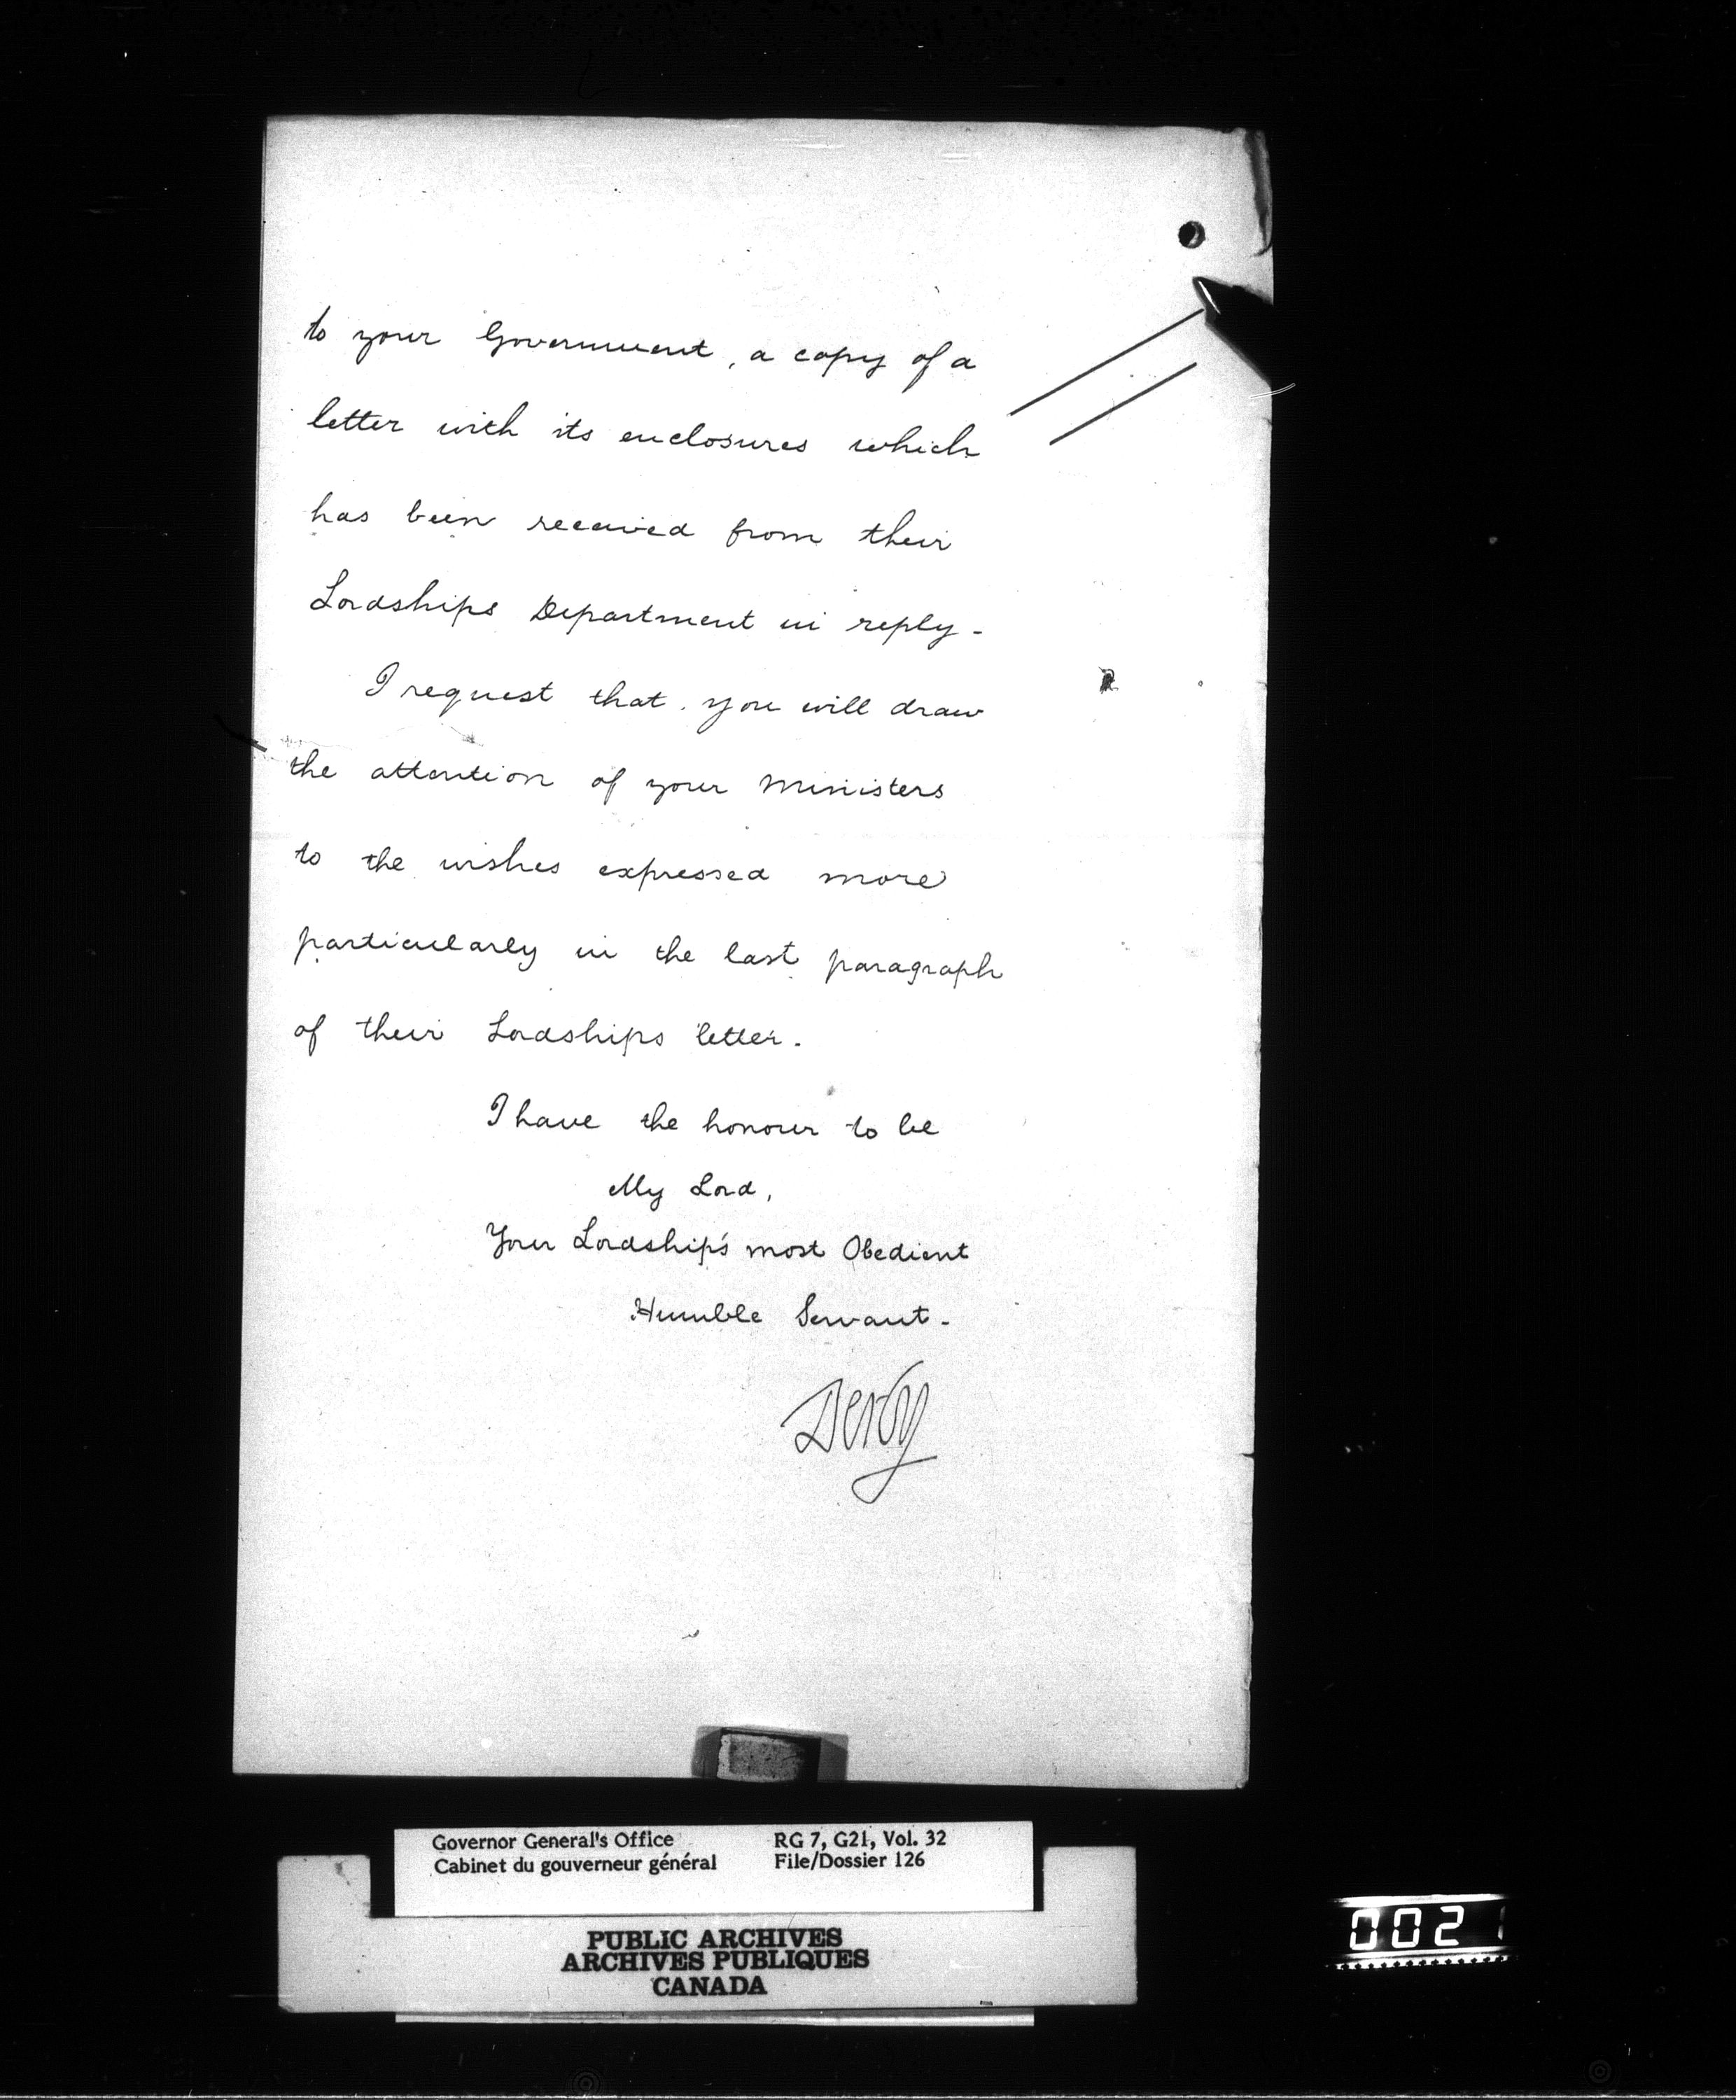 to your Government, a copy of a
letter with its enclosures which
has been received from their
Lordships Department in reply -
I request that you will draw
the attention of your Ministers
to the wishes expressed more
particularly in the last paragraph
of their Lordships letter.
I have the honour to be
My Lord,
Your Lordship's most Obedient
Humble Servant.
Derby
Governor General's Office
Cabinet du gouverneur général
RG 7, G21, Vol. 32
File/Dossier 126
PUBLIC ARCHIVES
ARCHIVES PUBLIQUES
CANADA
0021